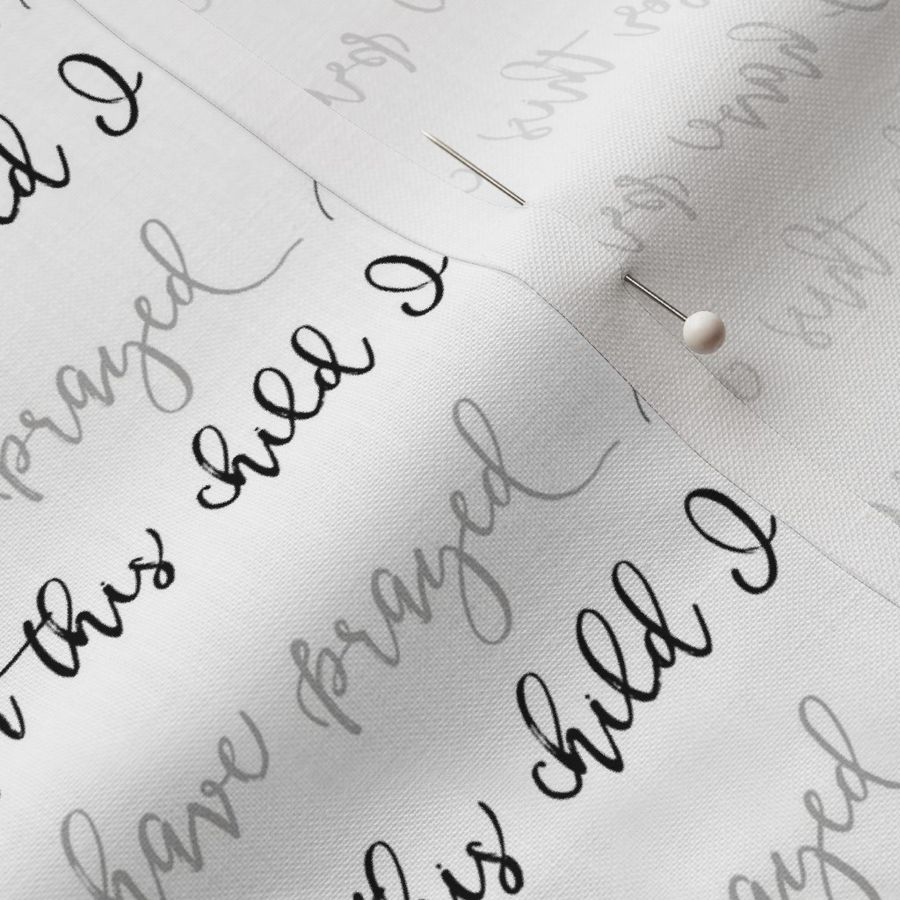 d I
prayed
this child I
have prayed
this child I
ayed
for
this
have
for
this